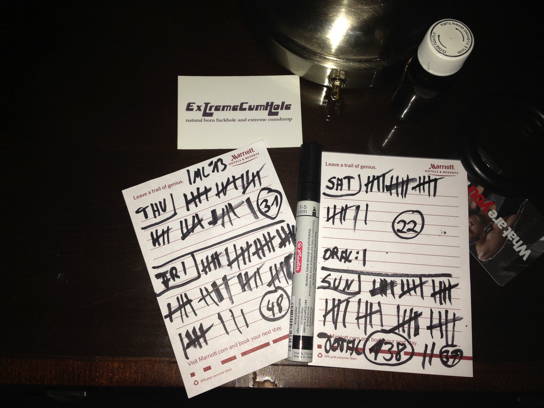 ExtremeCumHole
natural born fuckhole and extreme cumdump
Marriott
HOTELS & RESORTS
Leave a trail of genius.
IML '13
THU
31
FRI
48
Visit Marriott.com and book your next stay.
Marriott
HOTELS & RESORTS
Leave a trail of genius.
SAT
22
ORAL: 1
SUN
TOTAL 138 37
What are